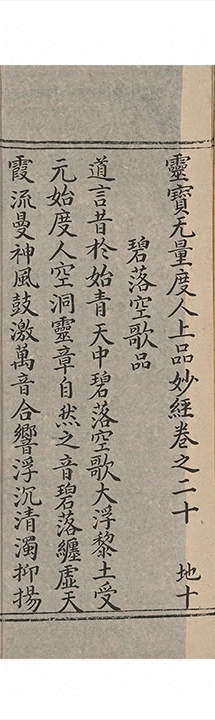 靈寶无量度人上品妙經卷之二十 地十
碧落空歌品
道言昔於始青天中碧落空歌大浮黎土受
元始度人空洞靈章自然之音碧落纏虛天
霞流曼神風鼓激萬音合響浮沉清濁抑揚